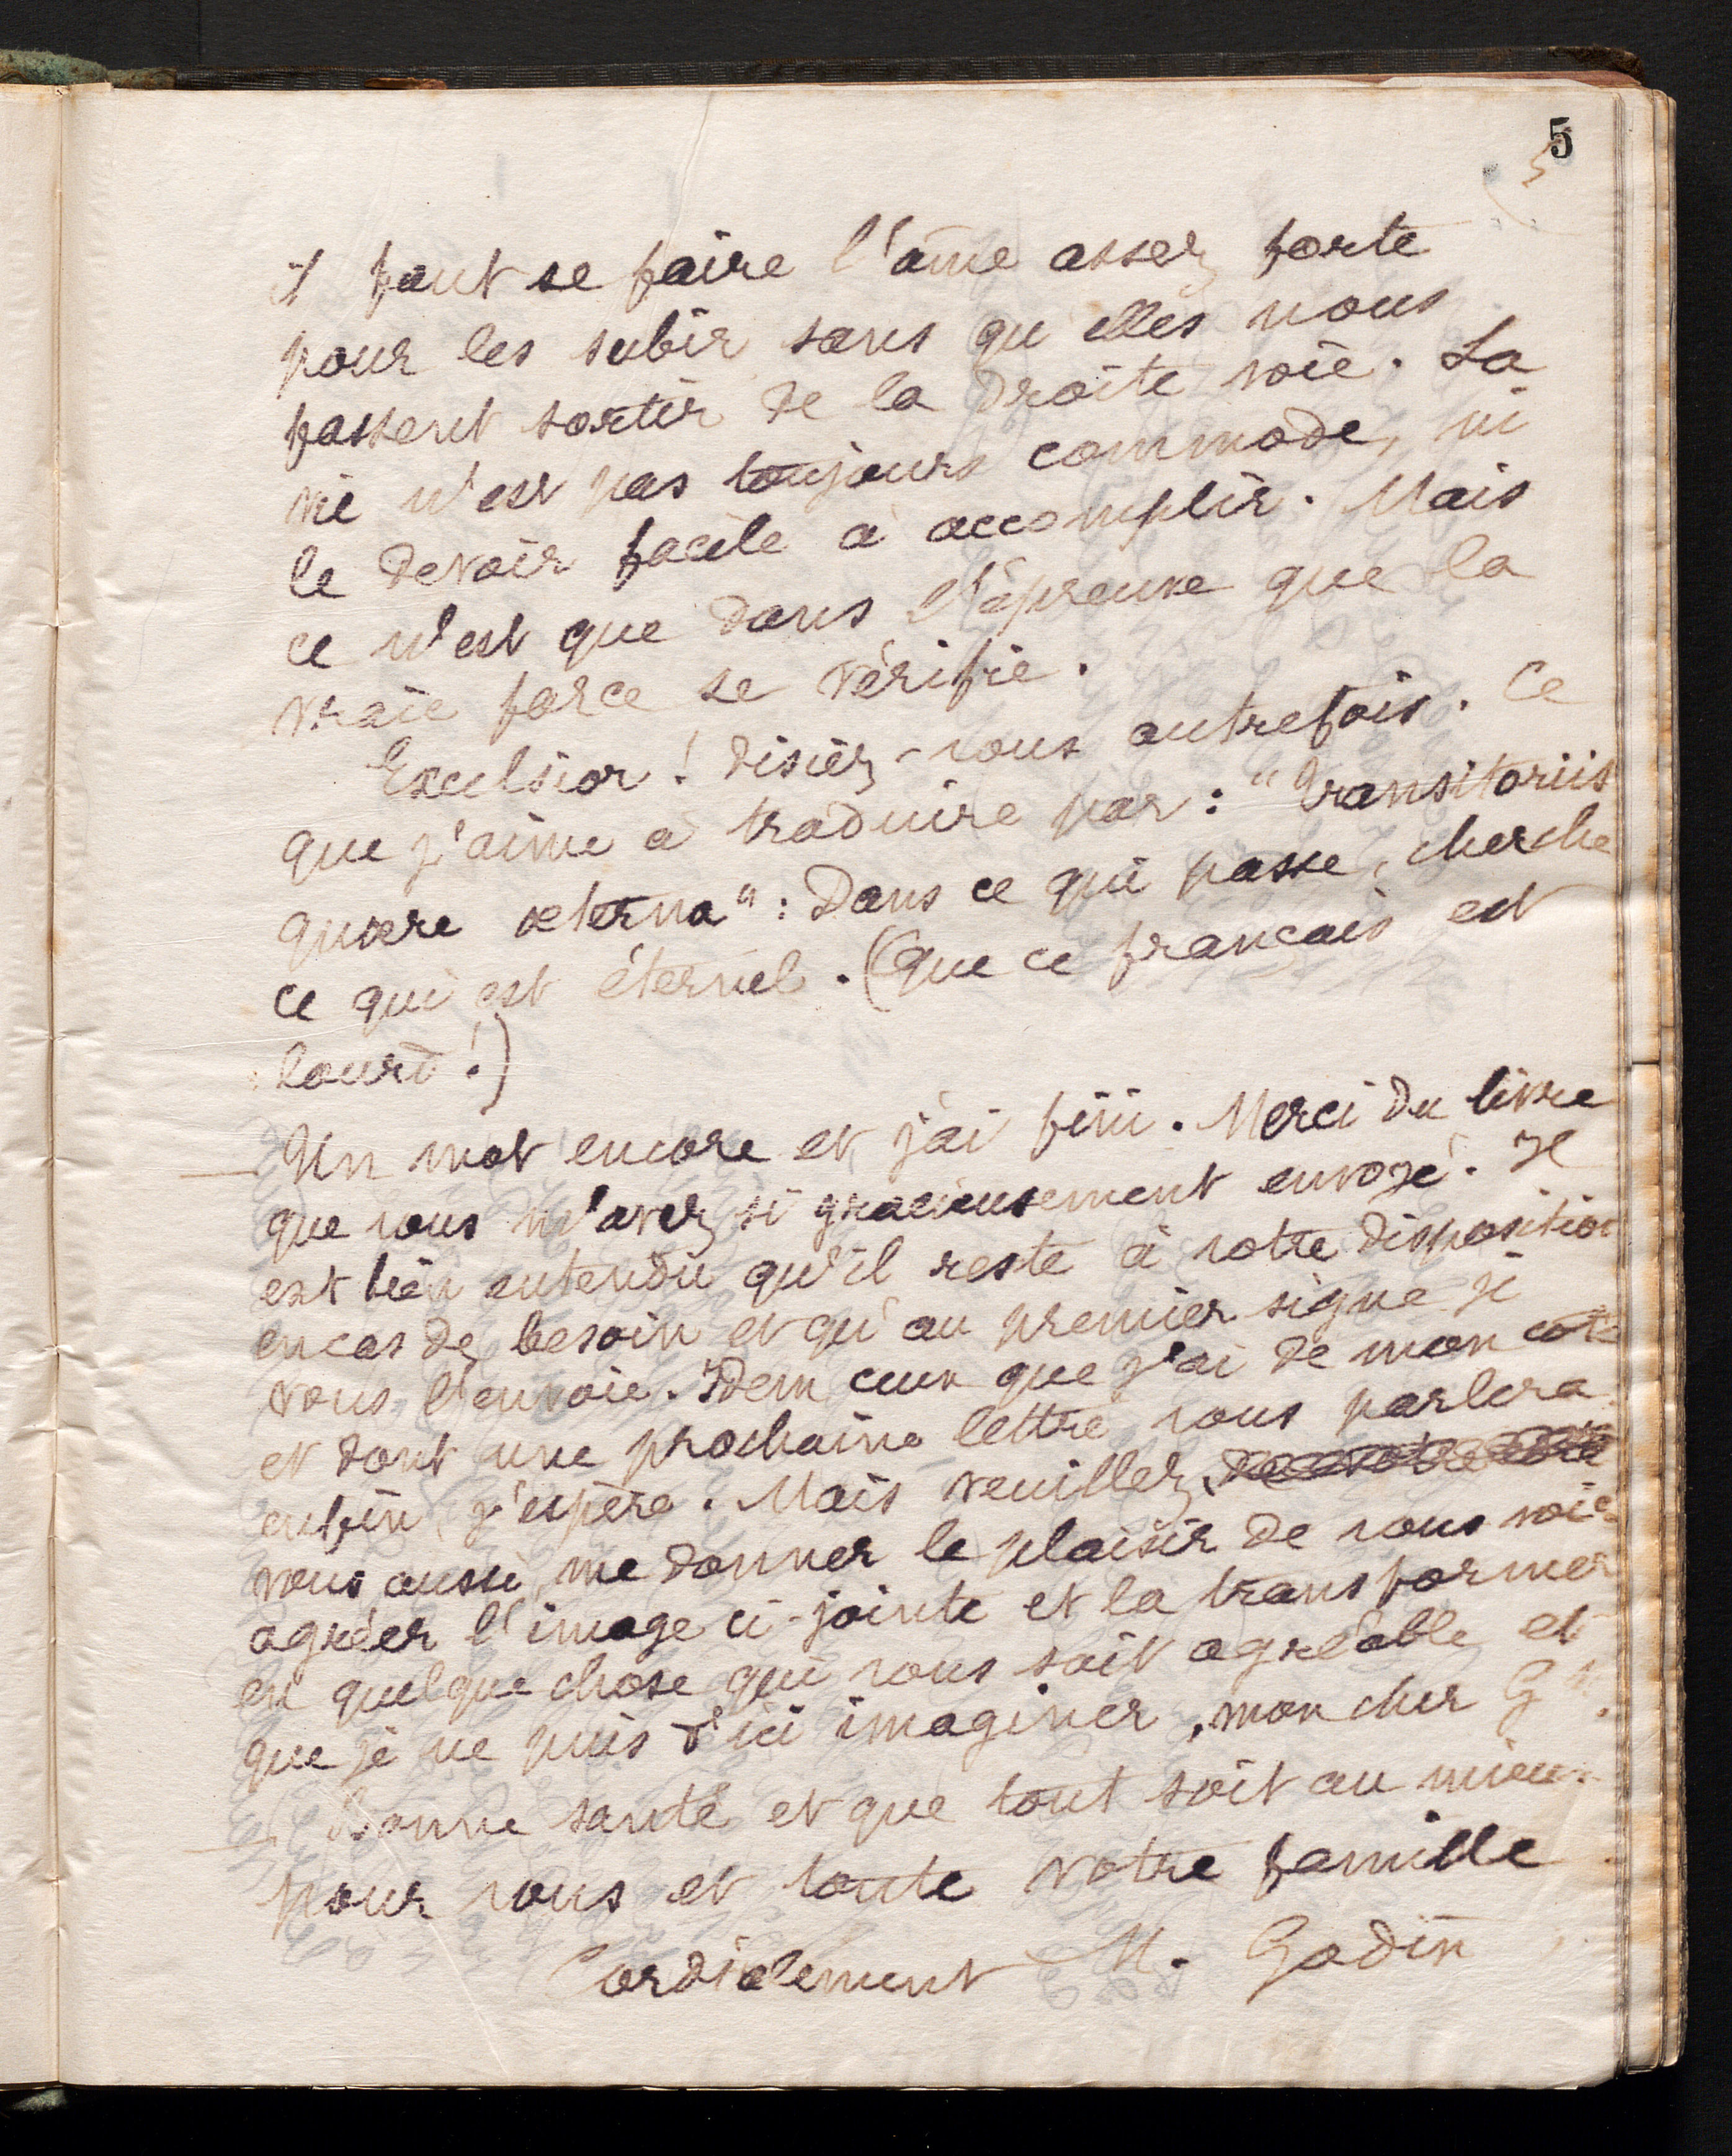 5
il faut se faire l'âme assez forte
pour les subir sans qu'elles nous
fassent sortir de la droite voie. La
vie n'est pas toujours commode, ni
le devoir facile à accomplir. Mais
ce n'est que dans l'épreuve que la
vraie force se vérifie.
Excelsior ! disiez-vous autrefois. Ce
que j'aime à traduire par : "Transitoriis
quære æterna" : Dans ce qui passe, cherche
ce qui est éternel. (Que ce français est
lourd !)
— Un mot encore et j'ai fini. Merci du livre
que vous m'avez si gracieusement envoyé. Il
est bien entendu qu'il reste à votre disposition
en cas de besoin et qu'au premier signe je
vous l'envoie. Idem ceux que j'ai de mon côté
et dont une prochaine lettre vous parlera
enfin, j'espère. Mais veuillez
vous aussi, me donner le plaisir de vous voir
agréer l'image ci-jointe et la transformer
en quelque chose qui vous soit agréable et
que je ne puis d'ici imaginer, mon cher
— Bonne santé et que tout soit au mieux
pour vous et toute votre famille
Cordialement M. Godin